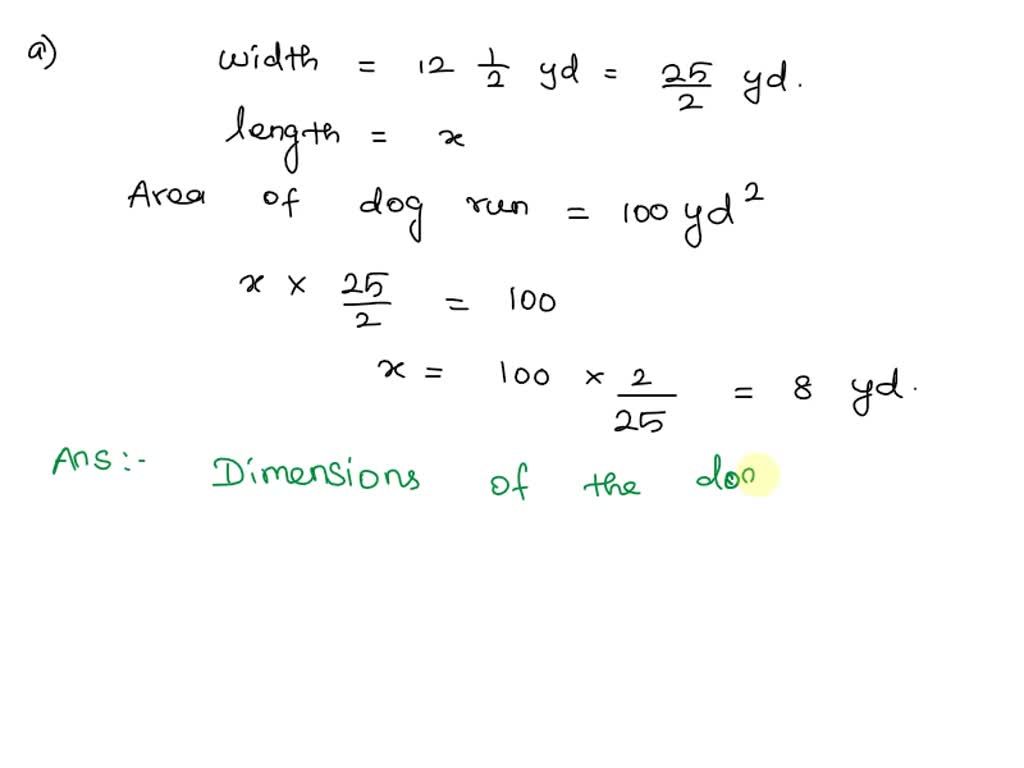 a) width = 12 1/2 yd = 25/2 yd.
length = x
Area of dog run = 100 yd²
x × 25/2 = 100
x = 100 × 2/25 = 8 yd.
Ans :- Dimensions of the